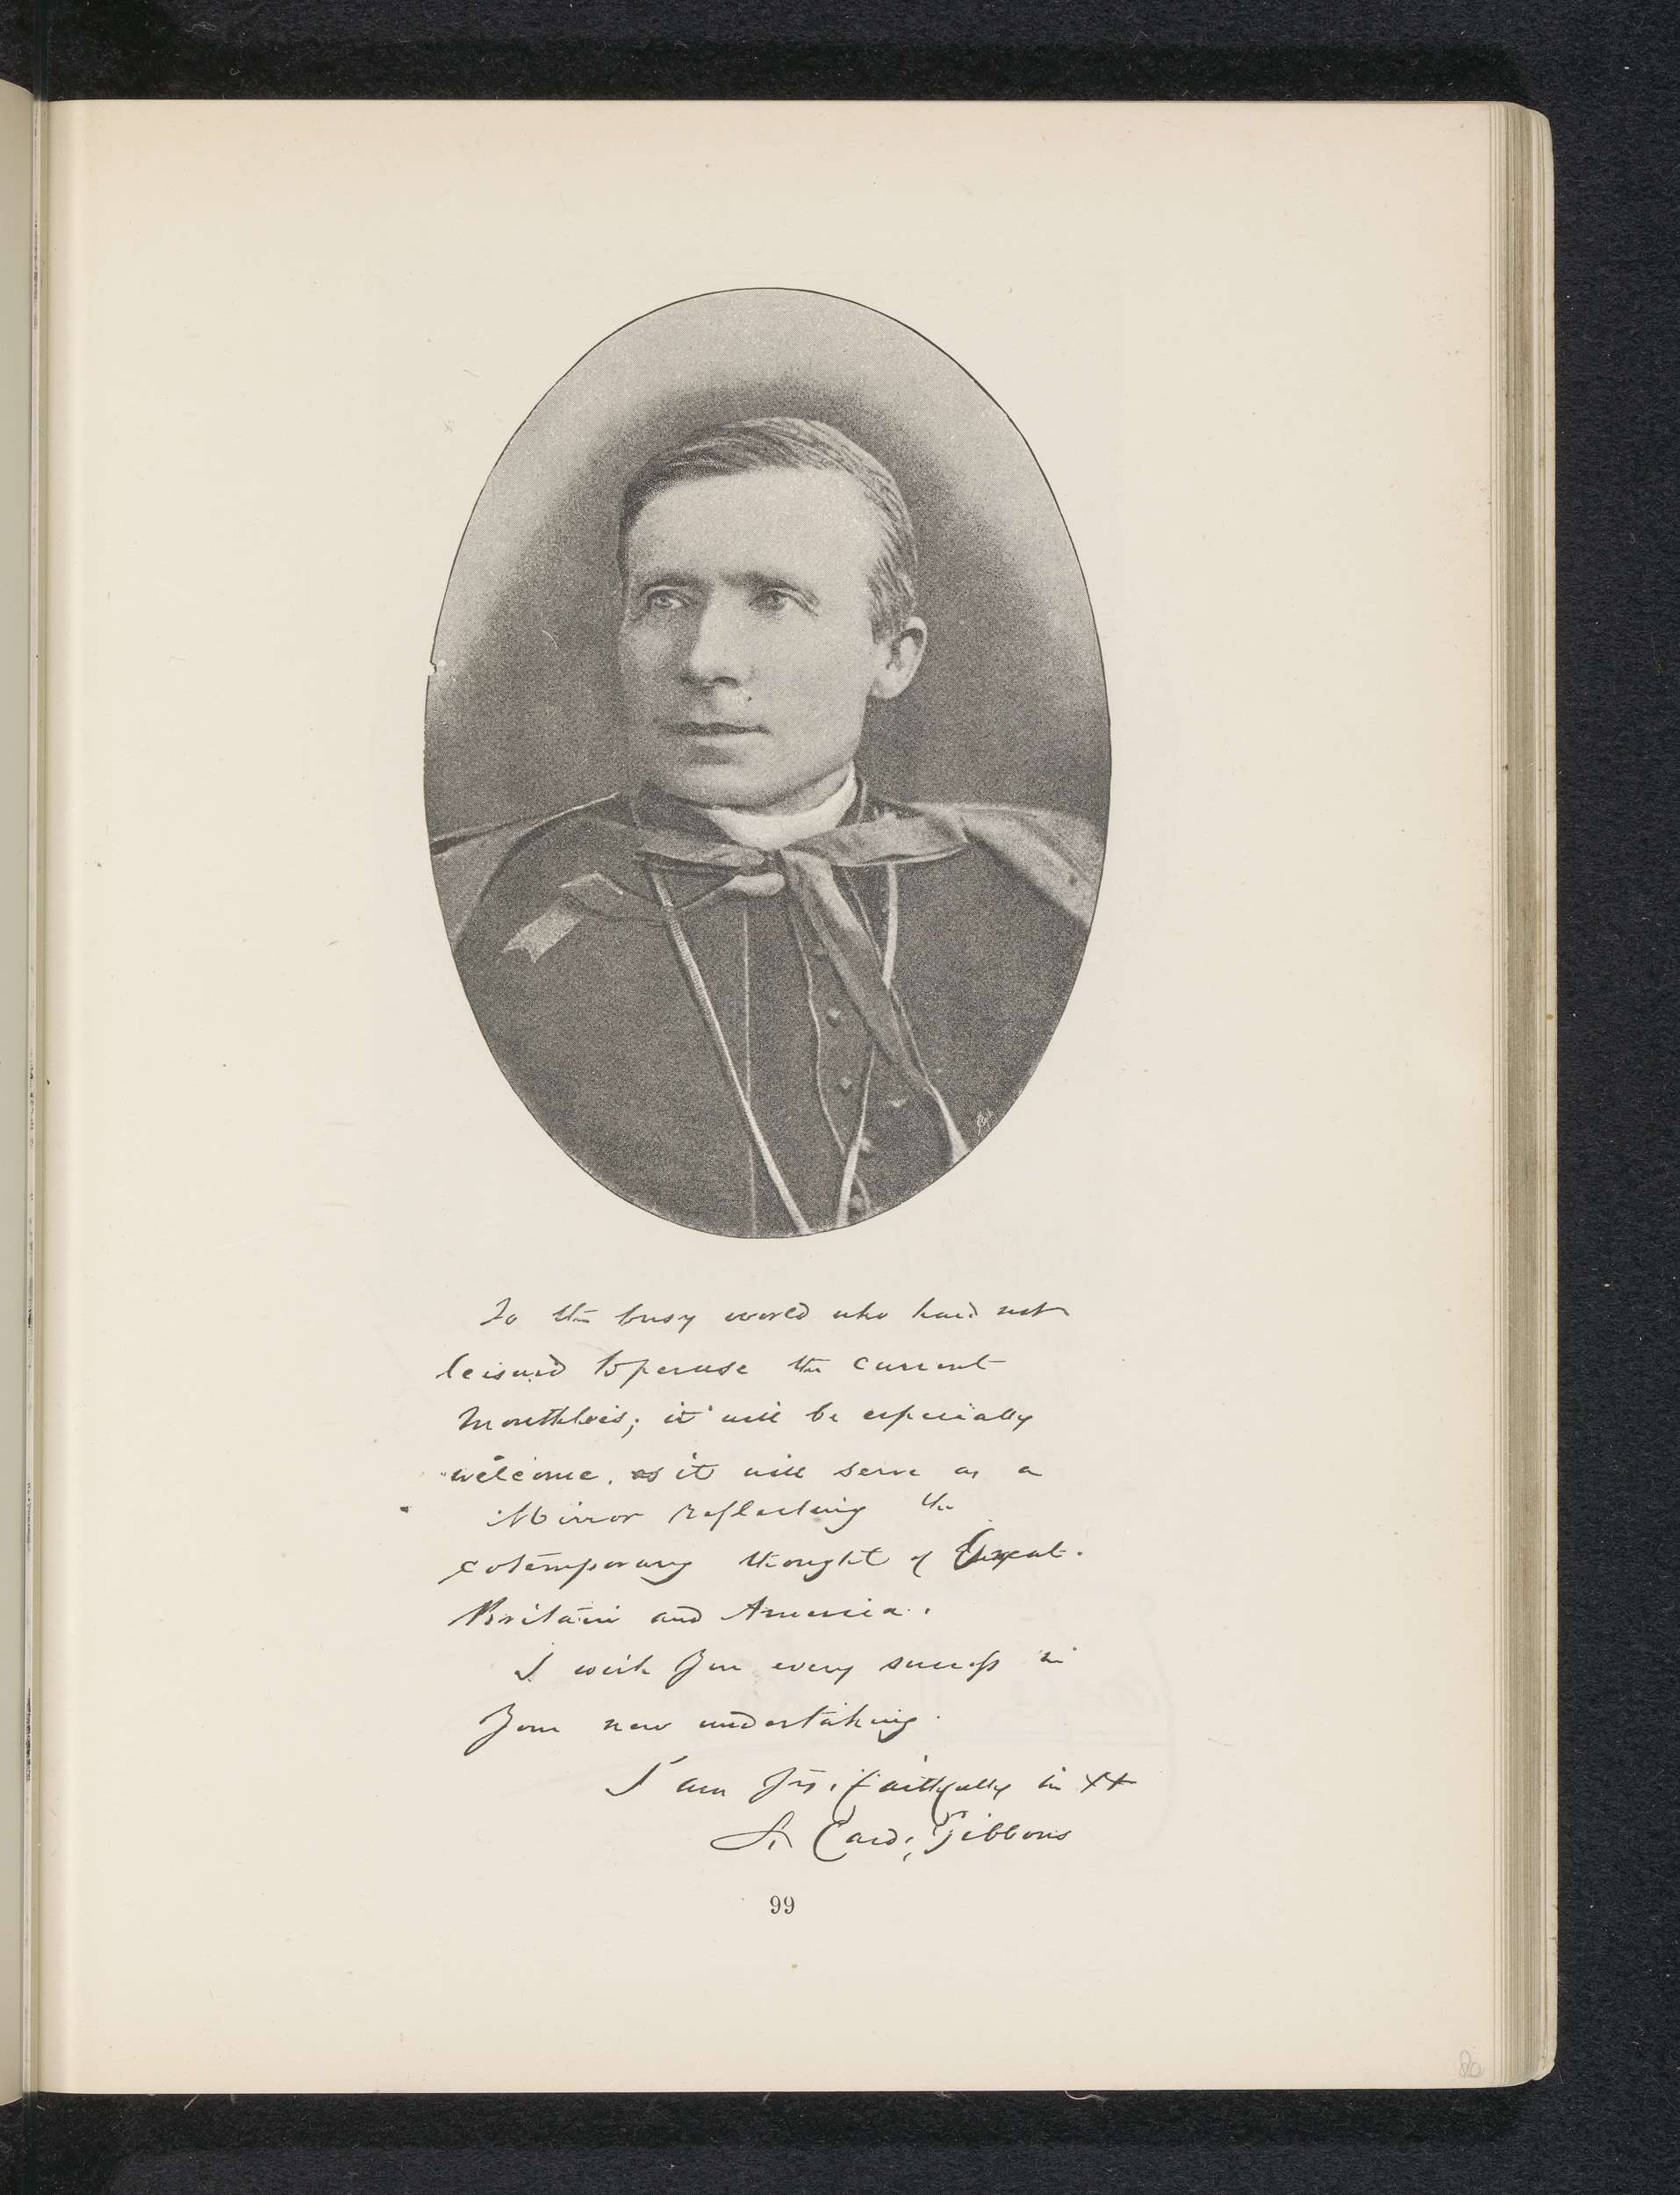 To the busy world who have not
leisure to peruse the current
Monthlies; it will be especially
welcome, as it will serve as a
Mirror reflecting the
cotemporary thought of Great
Britain and America.
I wish you every success in
your new undertaking.
I am Yrs. faithfully in Xt
J. Card. Gibbons
99
80